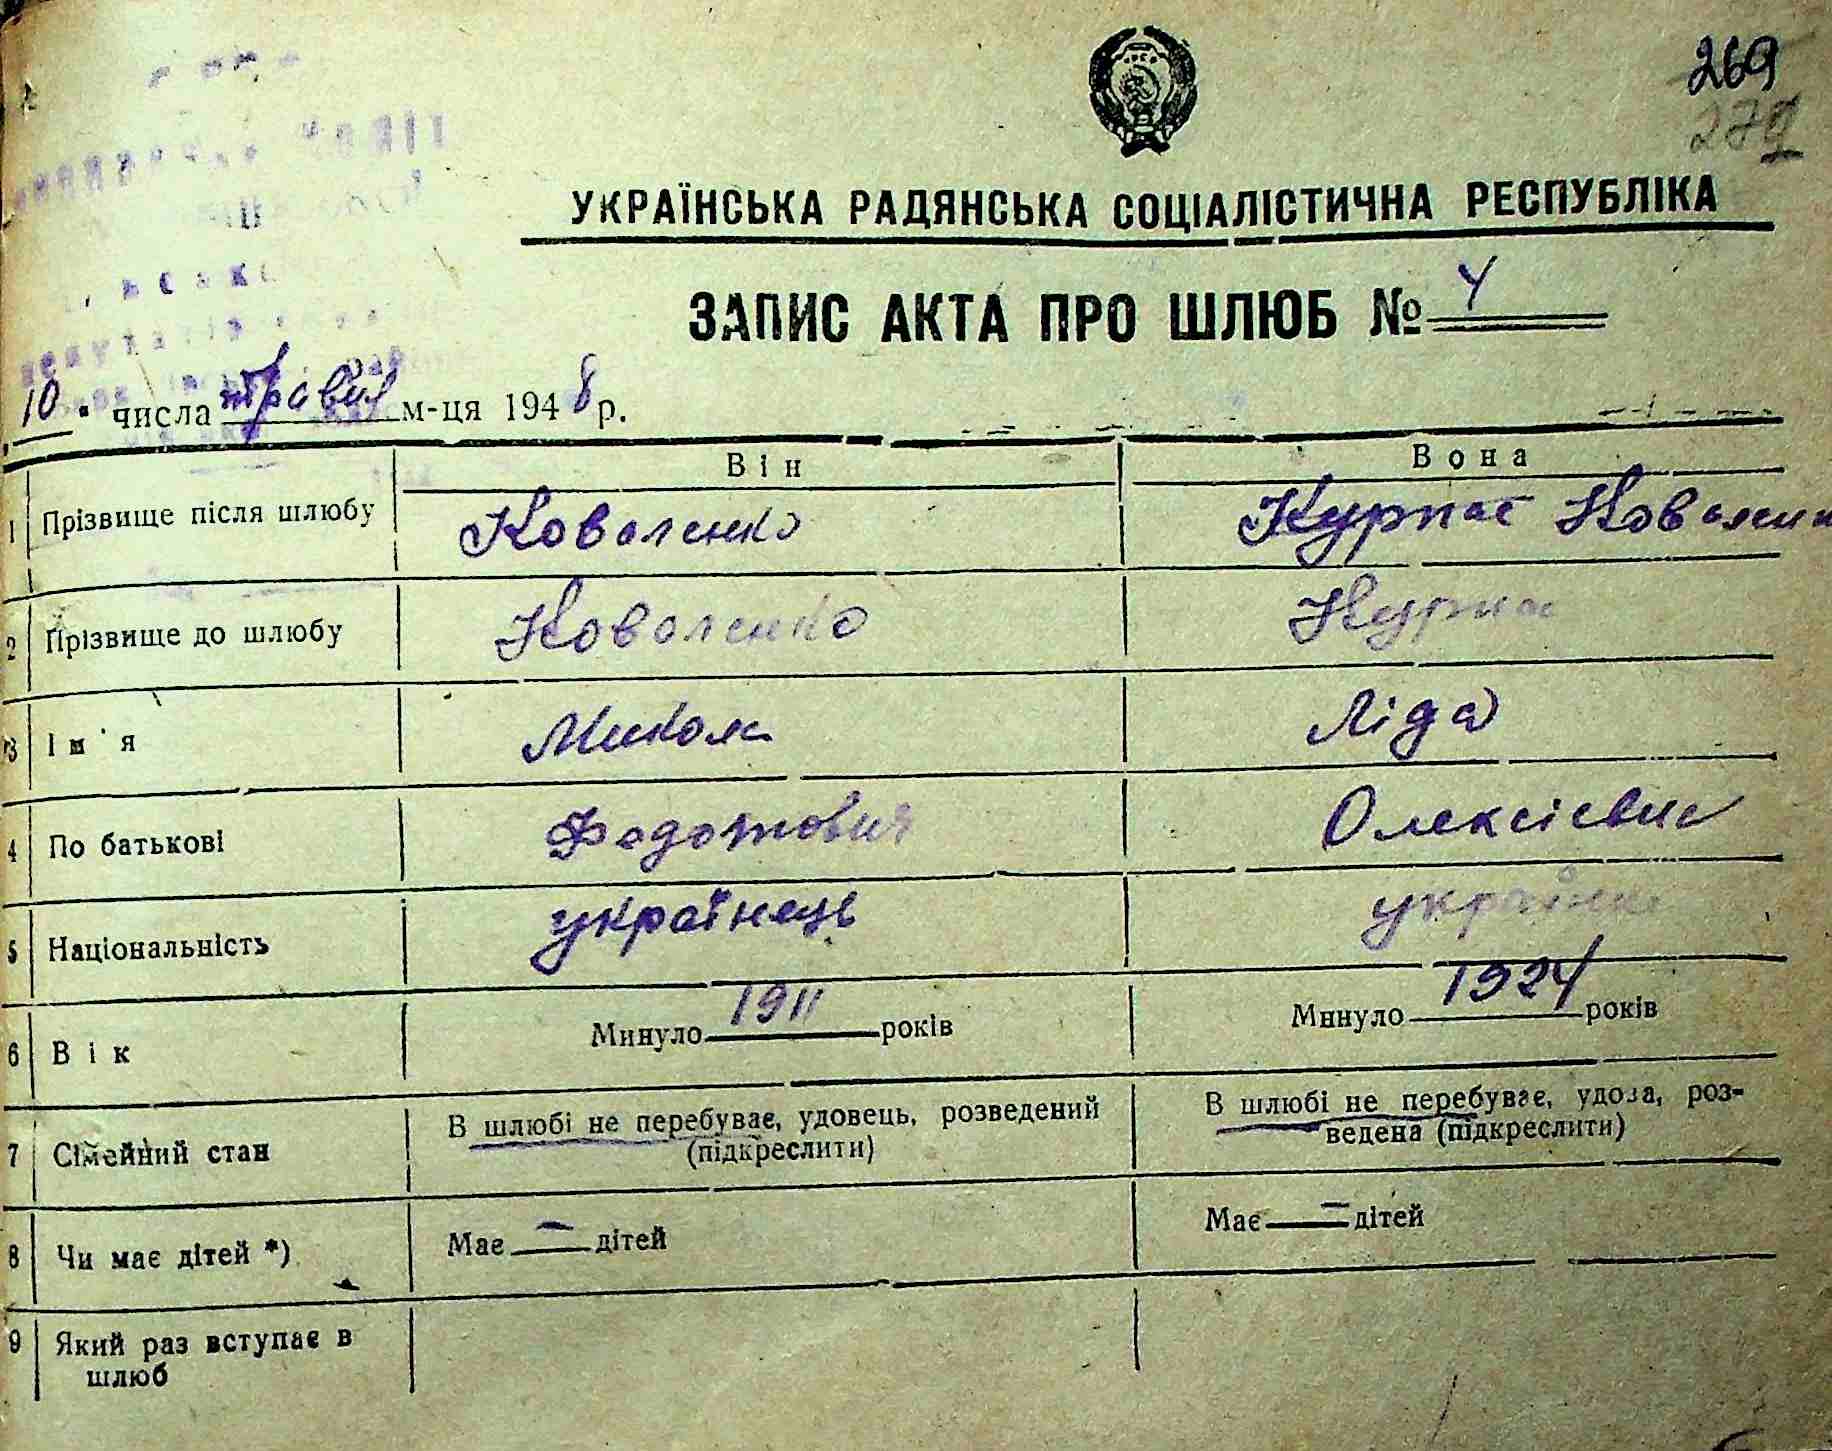 269
279
УКРАЇНСЬКА РАДЯНСЬКА СОЦІАЛІСТИЧНА РЕСПУБЛІКА
ЗАПИС АКТА ПРО ШЛЮБ № 4
10 числа травня м-ця 1948 р.
Він Вона
1 Прізвище після шлюбу Коваленко Курпас Коваленк
2 Прізвище до шлюбу Коваленко Курпас
3 Ім'я Микола Ліда
4 По батькові Федотович Олексієвна
5 Національність українець українка
6 Вік Минуло 1911 років Минуло 1924 років
7 Сімейний стан В шлюбі не перебуває, удовець, розведений (підкреслити) В шлюбі не перебуває, удова, роз-
ведена (підкреслити)
8 Чи має дітей *) Має — дітей Має — дітей
9 Який раз вступає в
шлюб